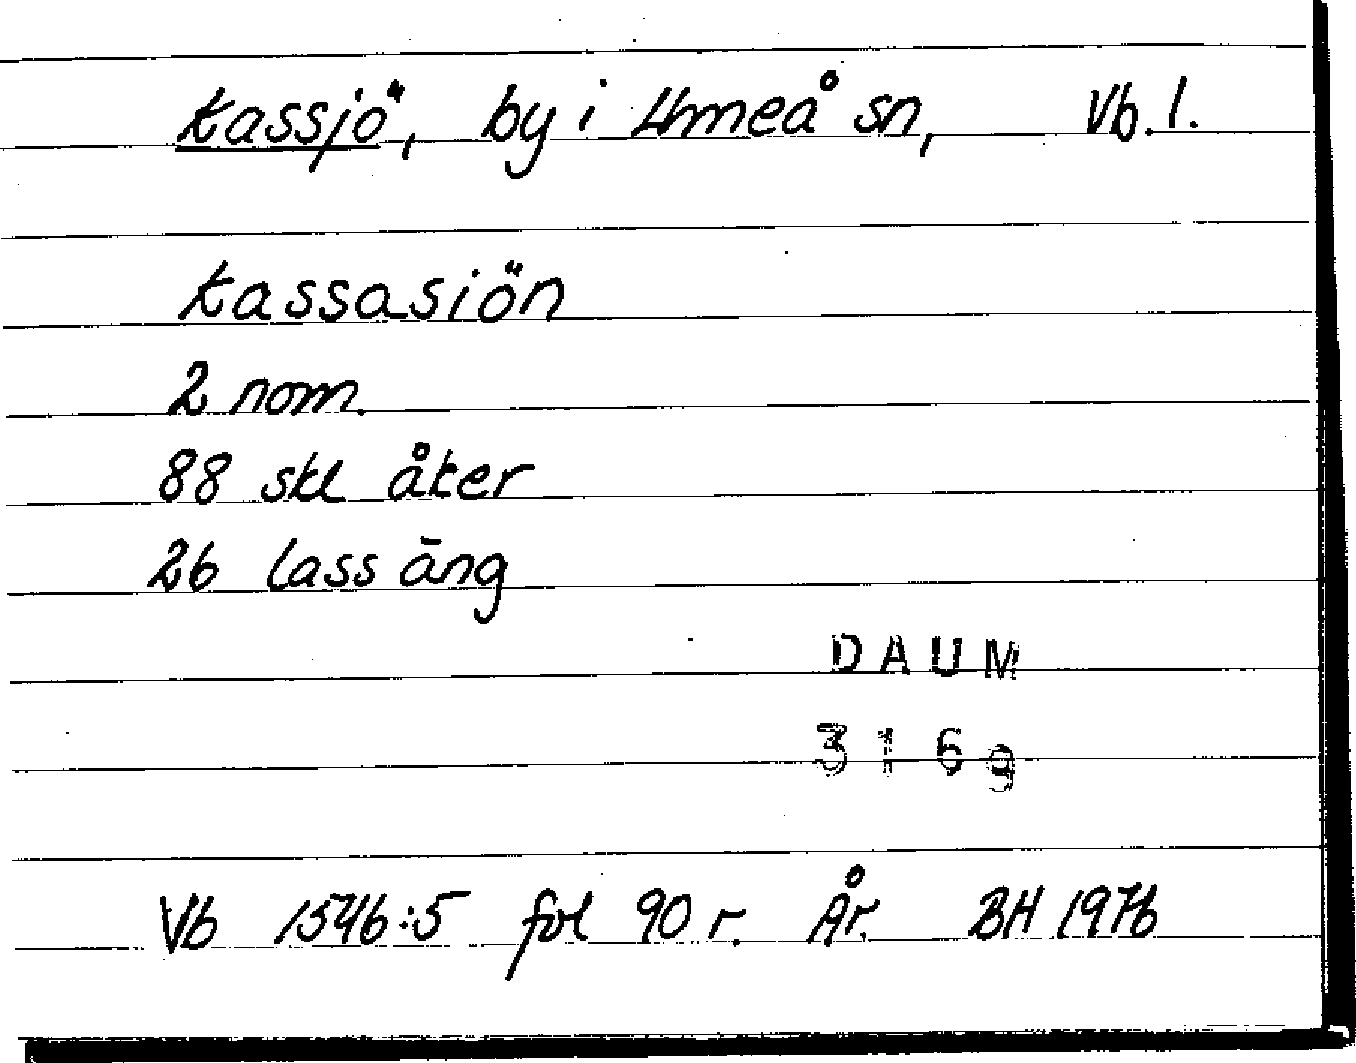 Kassjö, by i Umeå sn, Vb. l.
Kassasiön
2 nom.
88 skl åker
26 lass äng
DAUM
3169
Vb 1546:5 fol 90 r. År. BH 1976